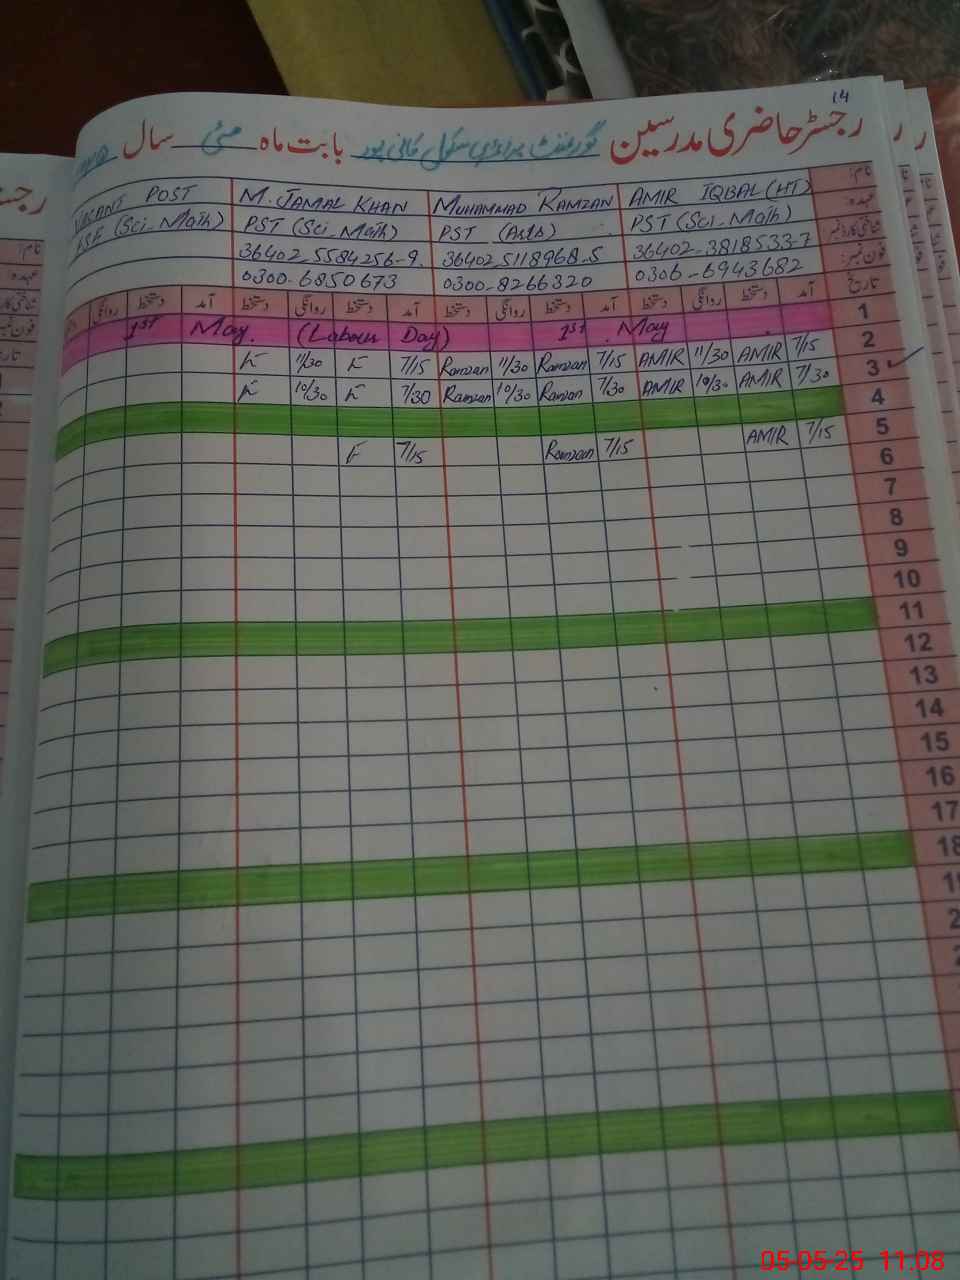 14
رجسٹر حاضری مدرسین گورنمنٹ پرائمری سکول بابت ماہ مئی سال
نام: AMIR IQBAL (HT) MUHAMMAD RAMZAN M. JAMAL KHAN VACANT POST
عہدہ PST (Sci_Math) PST (Arts) PST (Sci_Math) (Sci_Math)
شناختی کارڈ نمبر 36402-3818533-7 36402-5118968-5 36402-5584256-9
فون نمبر: 0306-6943682 0300-8266320 0300-6850673
تاریخ آمد دستخط روانگی دستخط آمد دستخط روانگی دستخط آمد دستخط روانگی دستخط آمد دستخط روانگی
1 1st May. (Labour Day) 1st May
2 7/15 AMIR 11/30 AMIR 7/15 Ramzan 11/30 Ramzan 7/15 11/30
3 7/30 AMIR 10/30 AMIR 7/30 Ramzan 10/30 Ramzan 7/30 10/30
4
5 7/15 AMIR 7/15 Ramzan 7/15
6
7
8
9
10
11
12
13
14
15
16
17
18
05-05-25 11:08